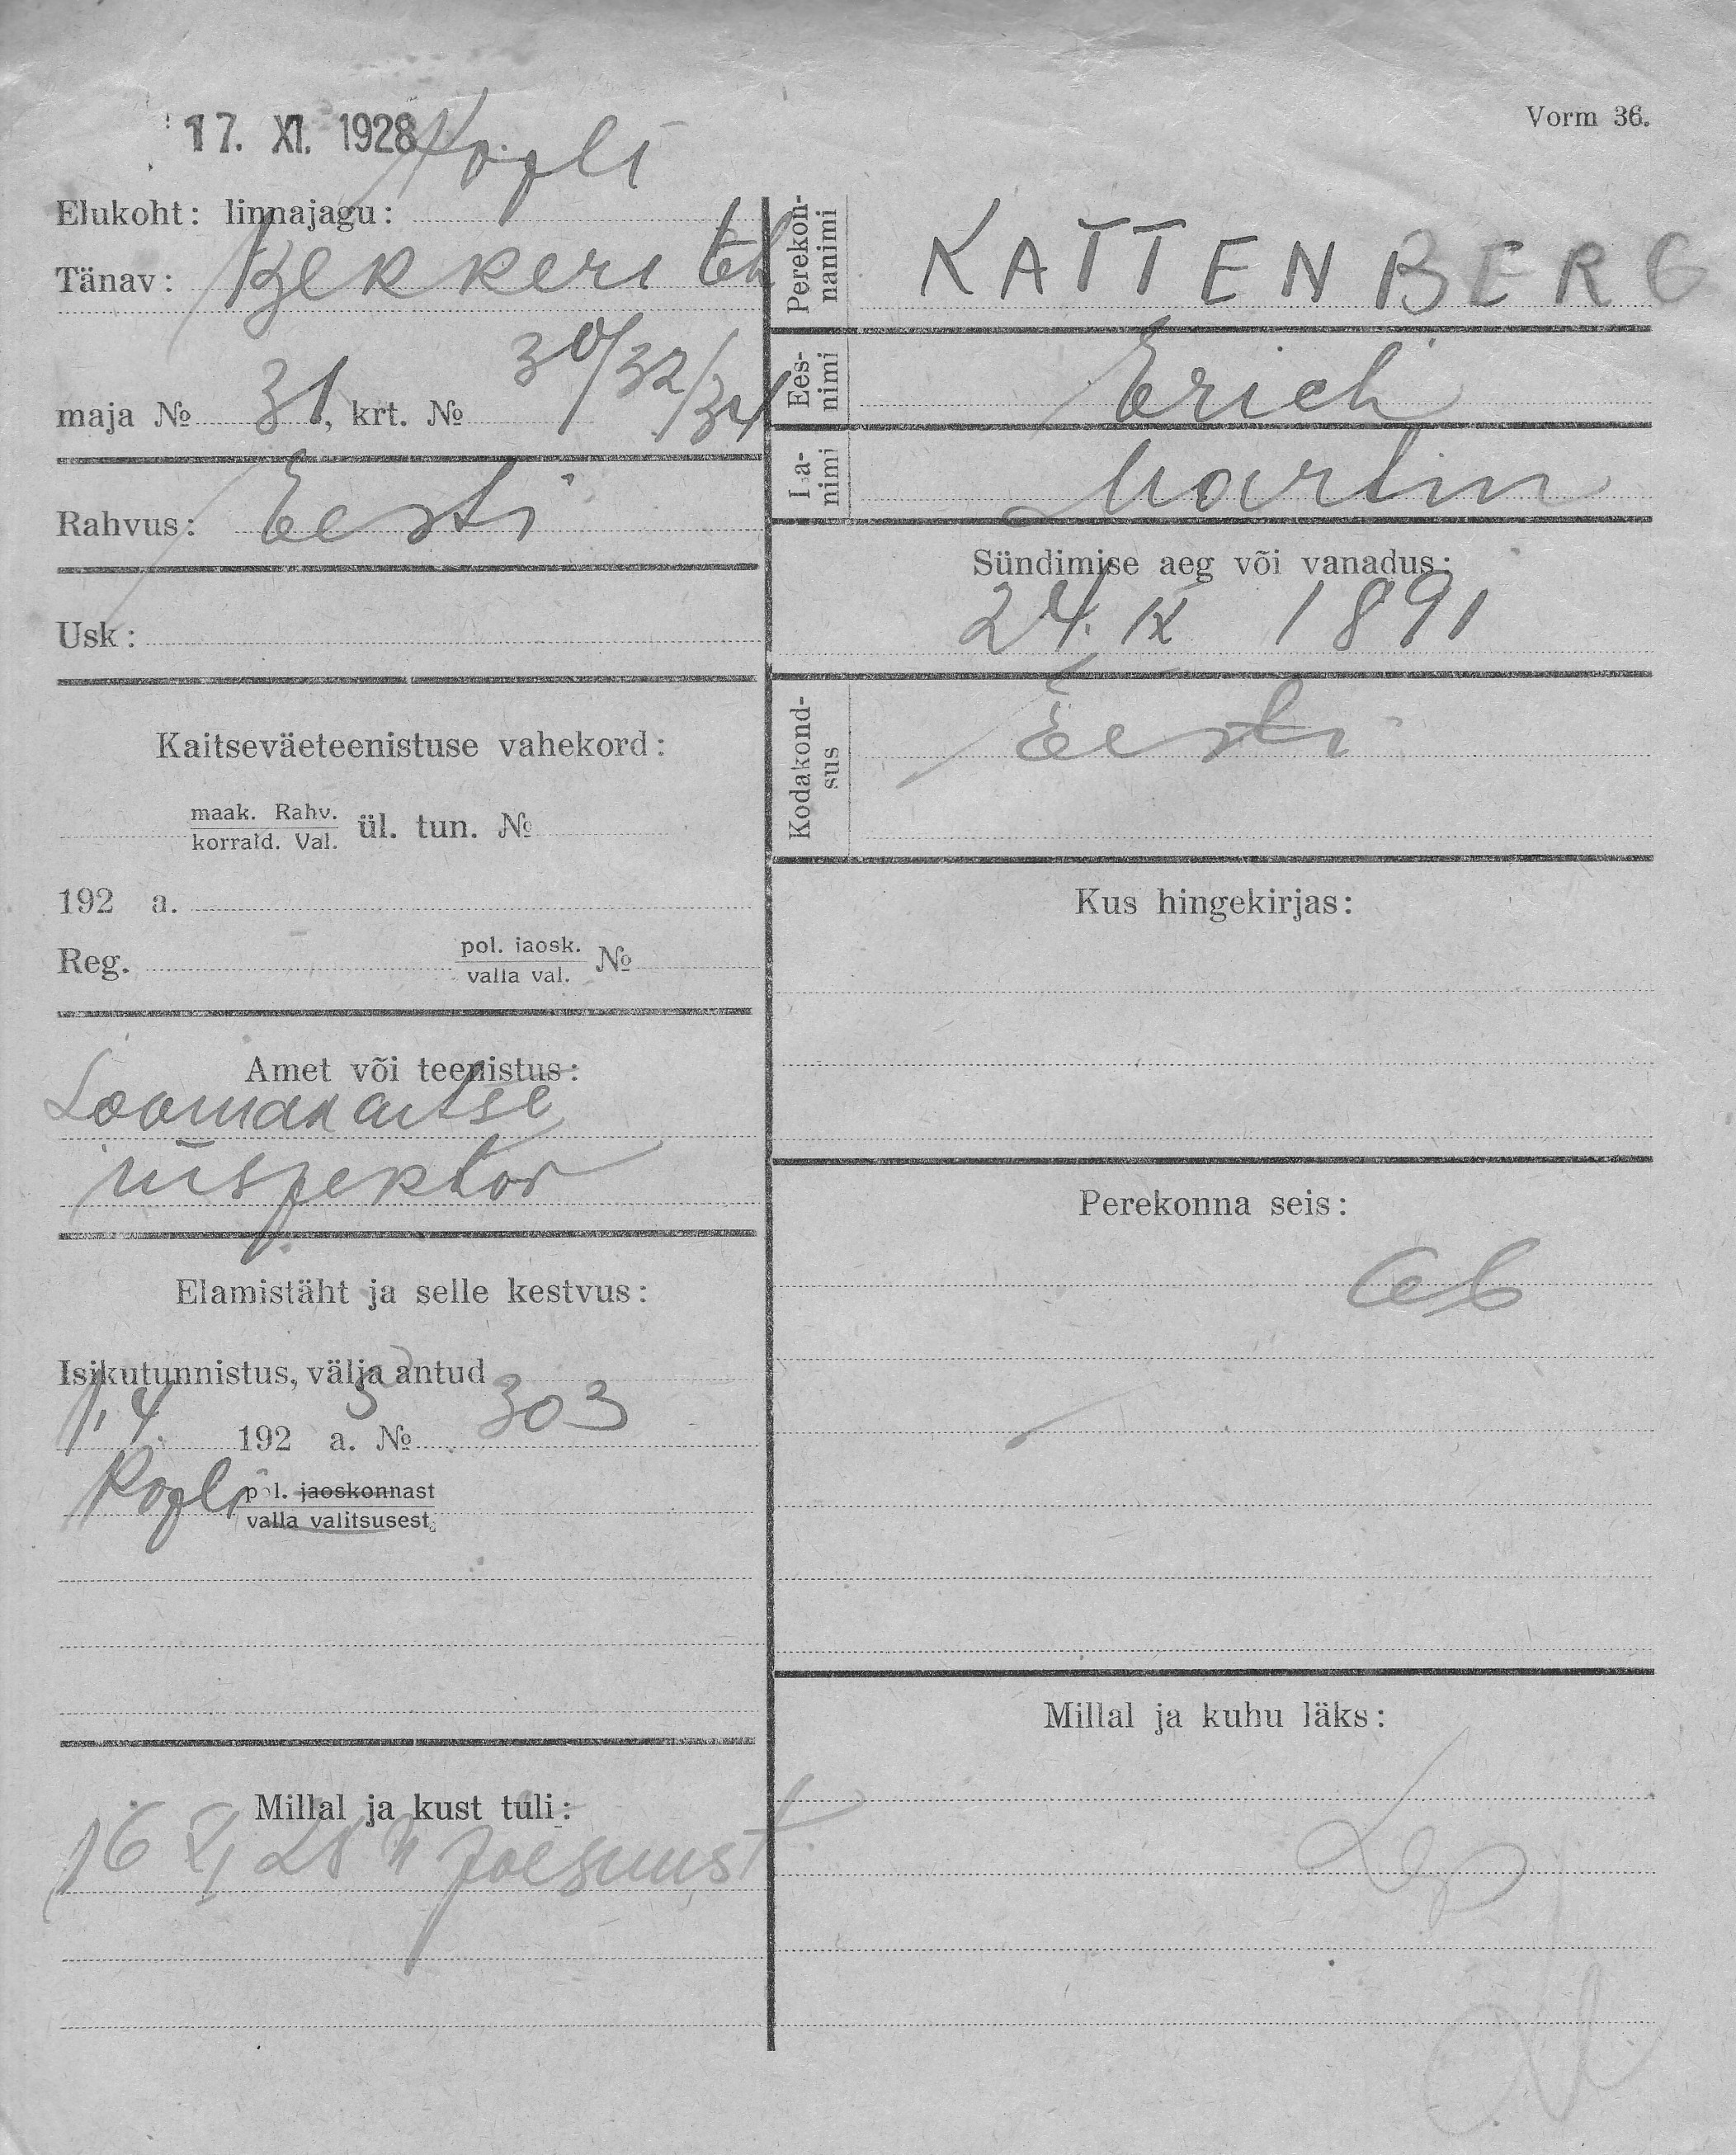 17. XI. 1928
Vorm 36.
Elukoht: linnajagu: Kopli
Tänav: Bekkeri teh
maja № 31, krt. № 30/32/34
Rahvus: Eesti
Usk:
Kaitseväeteenistuse vahekord:
maak. Rahv.
korrald. Val. ül. tun. №
192 a.
Reg. pol. jaosk.
valla val. №
Amet või teenistus:
Loomakaitse
inspektor
Elamistäht ja selle kestvus:
Isikutunnistus, välja antud
1.4 192 5 a. № 303
Kopli pol. jaoskonnast
valla valitsusest
Millal ja kust tuli:
16 XI 28 Joesuust
Perekon-
nanimi
KATTENBERG
Ees-
nimi
Erich
Isa-
nimi
Martin
Sündimise aeg või vanadus:
24. IX 1891
Kodakond-
sus
Eesti
Kus hingekirjas:
Perekonna seis:
ab
Millal ja kuhu läks: